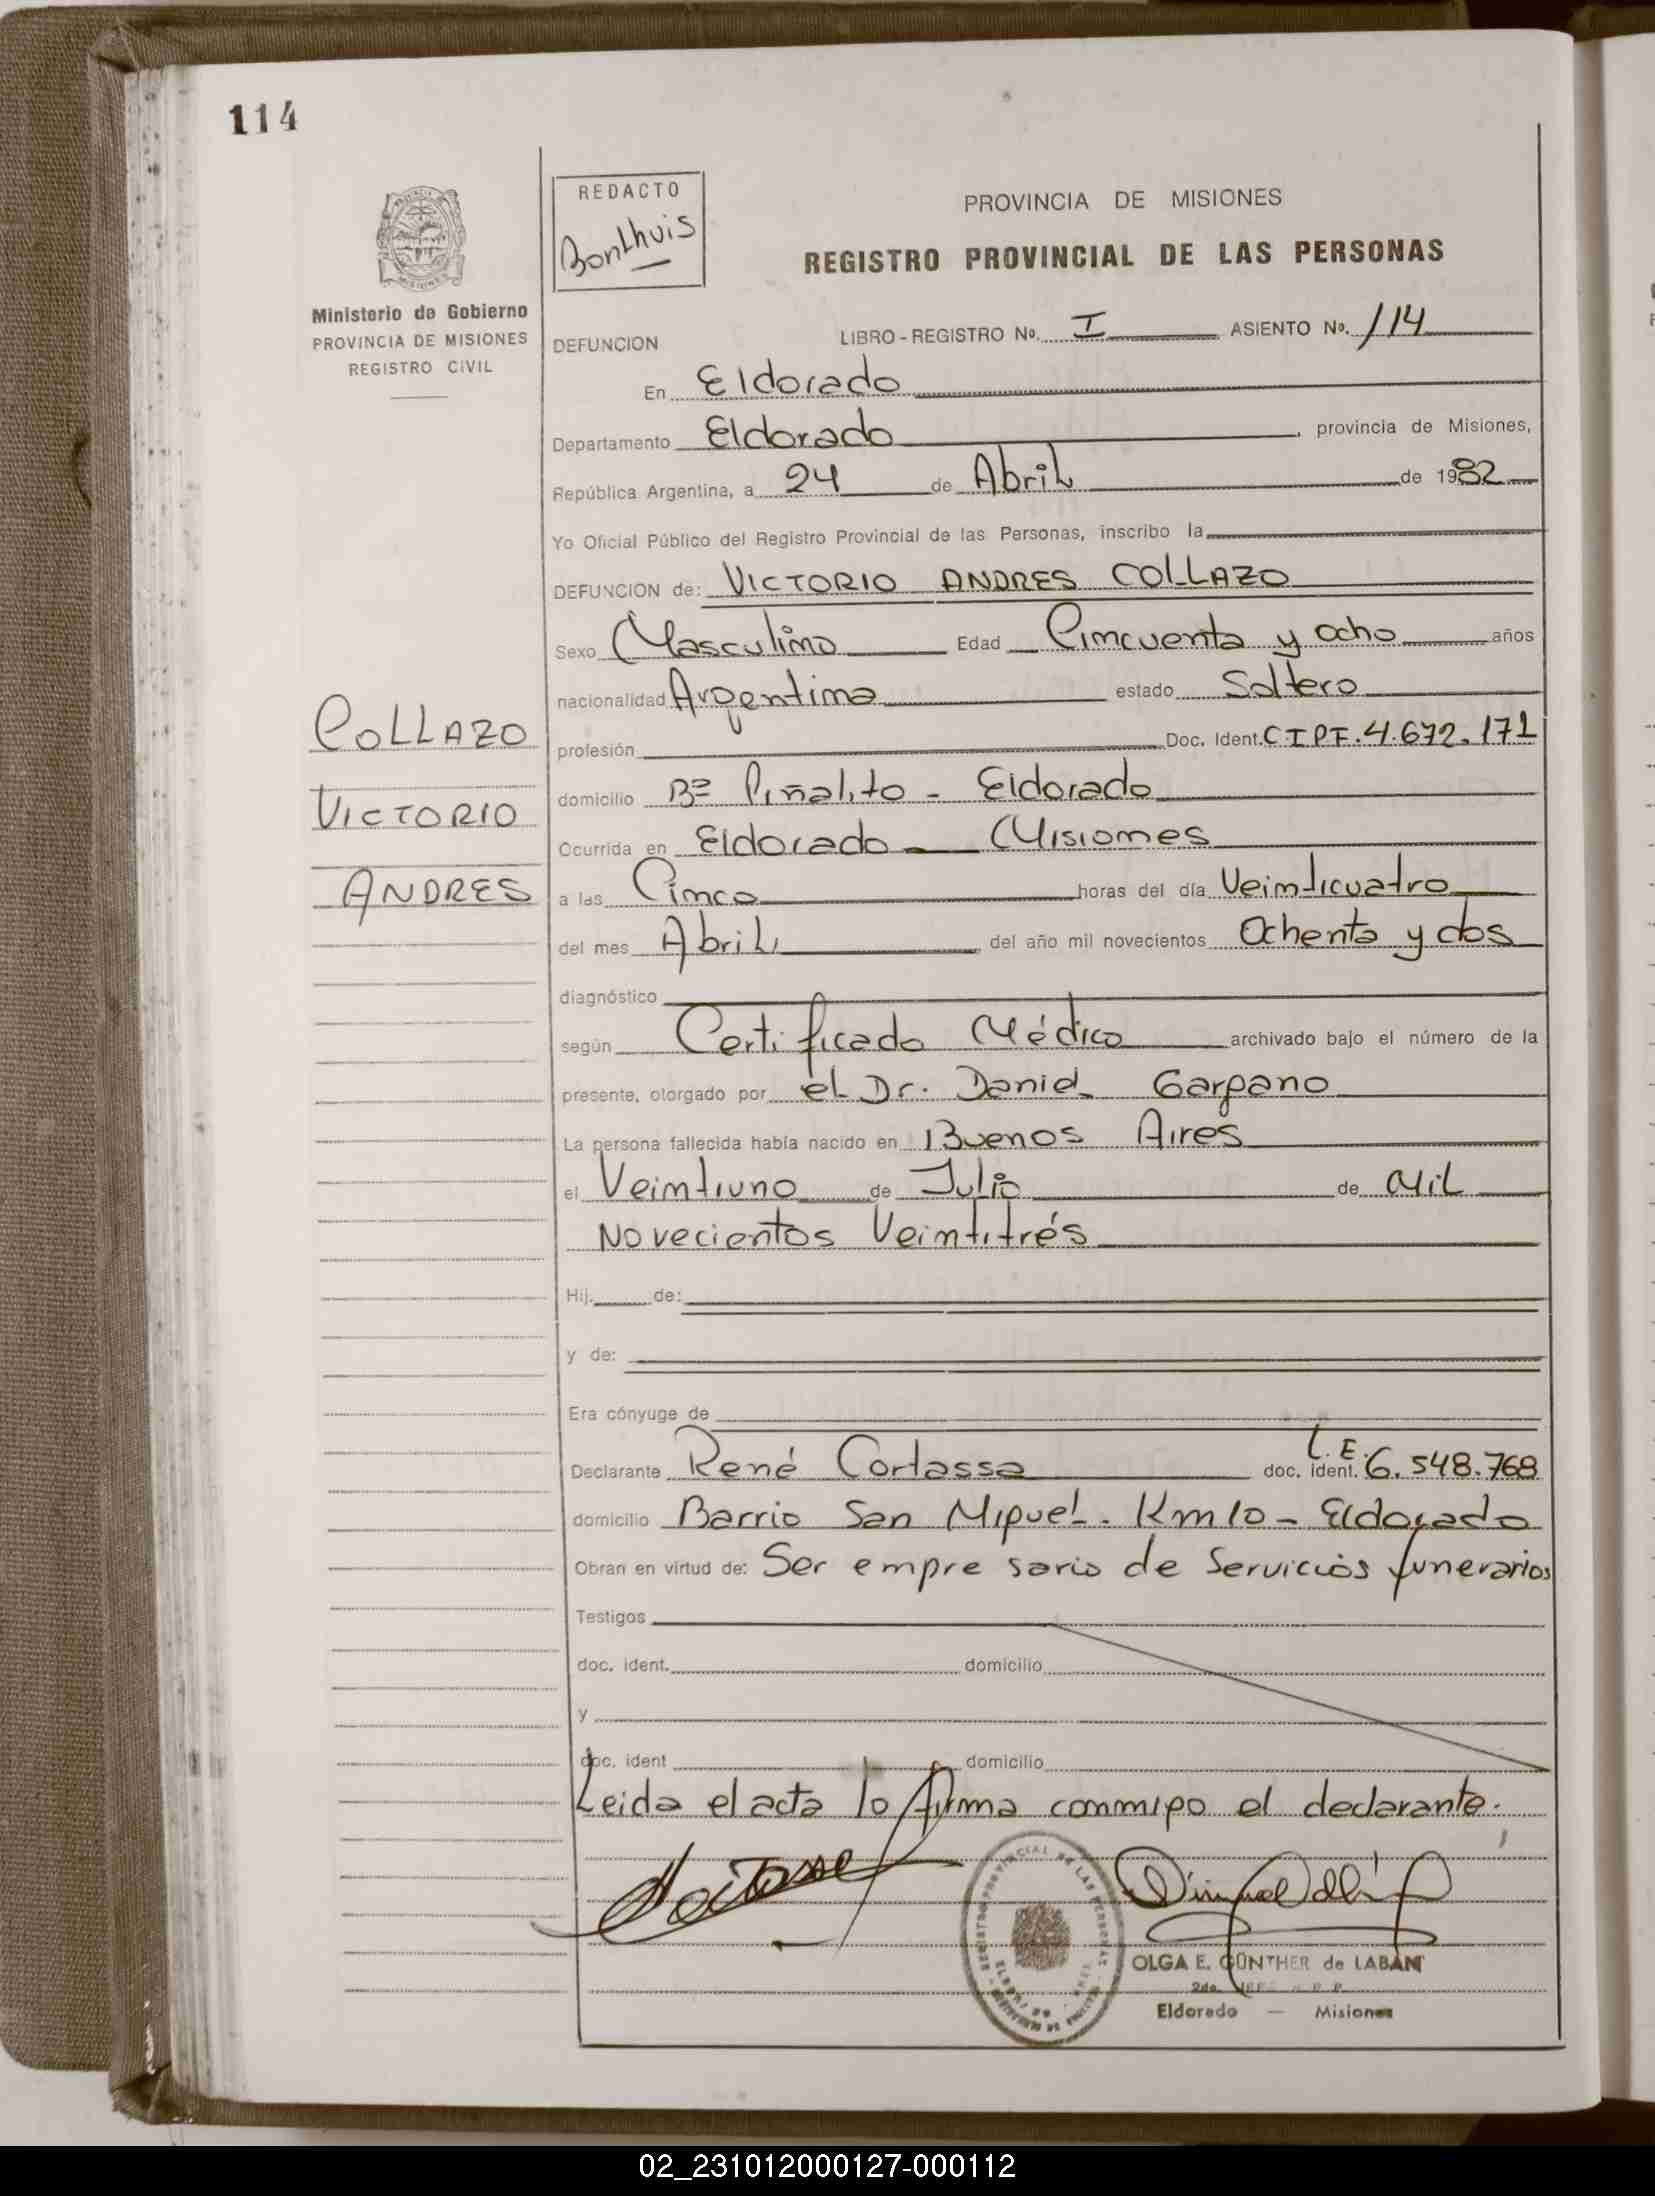 114
REDACTO
Bonthuis
PROVINCIA DE MISIONES
REGISTRO PROVINCIAL DE LAS PERSONAS
Ministerio de Gobierno
PROVINCIA DE MISIONES
REGISTRO CIVIL
DEFUNCION LIBRO-REGISTRO No. I ASIENTO No. 114
En Eldorado
Departamento Eldorado, provincia de Misiones,
República Argentina, a 24 de Abril de 1982
Yo Oficial Público del Registro Provincial de las Personas, inscribo la
DEFUNCION de: VICTORIO ANDRES COLLAZO
Sexo Masculino Edad Cincuenta y ocho años
nacionalidad Argentina estado Soltero
COLLAZO
VICTORIO
ANDRES
profesión Doc. Ident. CIPF.4.672.171
domicilio Bº Piñalito - Eldorado
Ocurrida en Eldorado - Misiones
a las Cinco horas del día Veinticuatro
del mes Abril del año mil novecientos Ochenta y dos
diagnóstico
según Certificado Médico archivado bajo el número de la
presente, otorgado por el Dr. Daniel Gargano
La persona fallecida había nacido en Buenos Aires
el Veintiuno de Julio de Mil
Novecientos Veintitrés
Hij. de:
y de:
Era cónyuge de
Declarante René Cortassa doc. ident. L.E. 6.548.768
domicilio Barrio San Miguel. Km 10 - Eldorado
Obran en virtud de: Ser empresario de Servicios funerarios
Testigos
doc. ident. domicilio
y
doc. ident domicilio
Leida el acta lo firma conmigo el declarante.
OLGA E. GÜNTHER de LABANT
Eldorado — Misiones
02_231012000127-000112